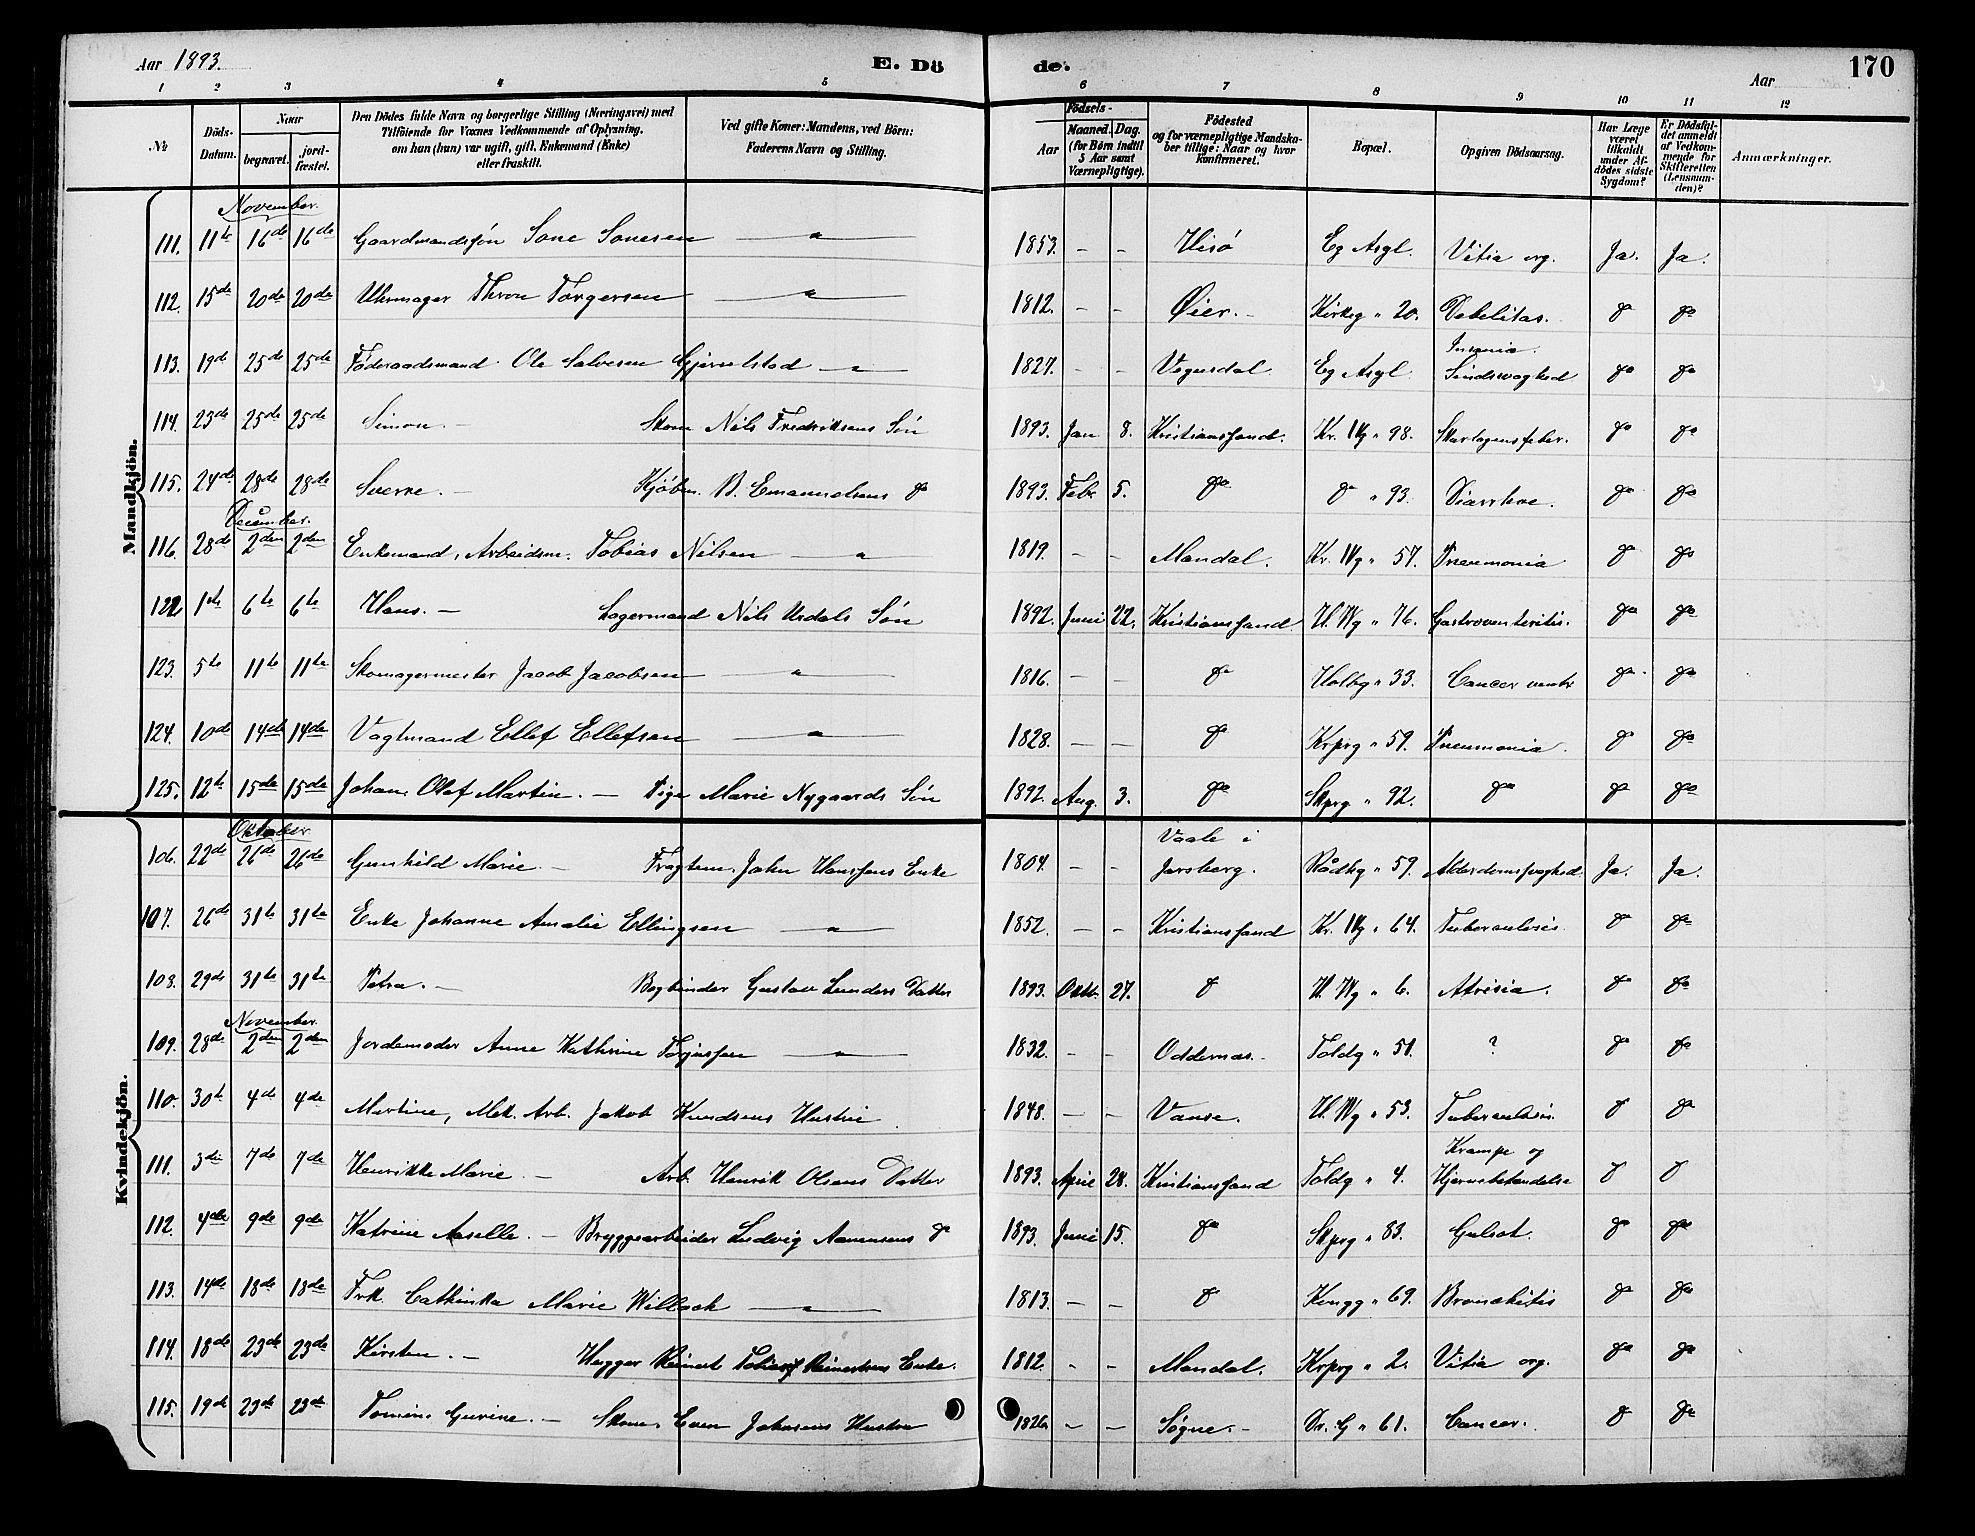 Aar 1893.
E. Dö
de.
Aar
170
1 2 3 4 5 6 7 8 9 10 11 12
No
Döds-Datum.
Naar
begravet.
jordfæstet.
Den Dödes fulde Navn og borgerlige Stilling (Næringsvei) med
Tilföiende for Voxnes Vedkommende af Oplysning,
om han (hun) var ugift, gift, Enkemand (Enke)
eller fraskilt.
Ved gifte Koner: Mandens, ved Börn:
Faderens Navn og Stilling.
Födsels-
Aar
Maaned. Dag.
(for Børn indtil
5 Aar samt
Værnepligtige).
Födested
og for værnepligtige Mandska-
ber tillige: Naar og hvor
konfirmeret.
Bopæl.
Opgiven Dödsaarsag.
Har Læge
været
tilkaldt
under Af-
dødes sidste
Sygdom?
Er Dödsfal-
det anmeldt
af Vedkom-
mende for
Skifteretten
(Lensman-
den)?
Anmærkninger.
Mandkjön.
November.
111. 11te 16de 16de Gaardmandsøn Sone Sonesen — " — 1853. - - Hisø Eg Asyl. Vitia org. Ja. Ja.
112. 15de 20de 20de Uhrmager Thron Torgersen — " — 1812. - - Øier. - Kirkeg " 20. Debelitas. do do
Insania.
113. 19de 25de 25de Føderaadsmand Ole Salvesen — " — 1827. - - Vegusdal Eg Asyl. Sindsvaghed do do
114. 23de 25de 25de Simon. - Skom Nils Fredriksens Søn 1893. Jan 8. Kristianssand. Kr. IVg " 98. Skarlagensfeber. do do
115. 24de 28de 28de Sverre. - Kjøbm. B. Emanuelsens do 1893. Feb. 5. do do " 93. Diarrhoe. do do
December.
116. 28de 2den 2den Enkemand, Arbeidsm. Tobias Nilsen — " 1819. - - Mandal. Kr. IVg " 57. Pneumonia do do
122 1ste 6te 6te Hans. - Lagermand Nils Urdals Søn 1892. Juni 22. Kristianssand. H. IVg " 76. Gastroenteritis. do do
123. 5te 11te 11te Skomagermester Jacob Jacobsen — " — 1816. - - do Holbg " 33. Cancer ventr do do
124. 10de 14de 14de Vagtmand Ellef Ellefsen — " — 1828. - - do Krprg " 59. Pneumonia. do do
125. 12te 15de 15de Johan Olaf Martin. - Pige Marie Nygaards Søn 1892. Aug. 3. do Skprg " 92. do do do
Kvindekjön.
Oktober.
Vaale i
106. 22de 26de 26de Gunhild Marie. - Fragtem. John Hanssens Enke 1804. - - Jarsberg. Rådhg " 59. Alderdomssvaghed. Ja. Ja.
107. 26de 31te 31te Enke Johanne Amalie Ellingsen — " — 1852. - - Kristianssand Kr. IVg " 64. Tuberculosis. do do
108. 29de 31te 31te Petra. - Bogbinder Gustav Lunders Datter 1893. Oktb. 27. do H. IVg " 6. Atresia. do do
November.
109. 28de 2den 2den Jordemoder Anne Kathrine Torjussen — " — 1832. - - Oddernæs. - Toldg " 51. ? do do
110. 30te 4de 4de Martine, Mek. Arb. Jakob Knudsens Hustru 1848. - - Vanse. H. IVg " 53. Tuberculosis do do
Krampe og
111. 3die 7de 7de Henrikke Marie. - Arb. Henrik Olsens Datter 1893. April 28. Kristianssand Toldg " 4. Hjernebetændelse do do
112. 4de 9de 9de Katrine Aaselle. - Bryggearbeider Ludvig Aanensens do 1893. Juni 15. do Skprg " 83. Gulsot. do do
113. 14de 18de 18de Frk. Cathinka Marie Willoch — " — 1813. - - do Kongg " 69. Bronchitis do do
114. 18de 23de 23de Kirsten. - Hugger Reinert Tobias Reinertsens Enke. 1812. - - Mandal. Krprg " 2. Vitia org. do do
115. 19de 23de 23de Tomine Gurine. - Skom. Even Johnsens Hustru 1826. - - Søgne. - Dr. G " 61. Cancer. do do